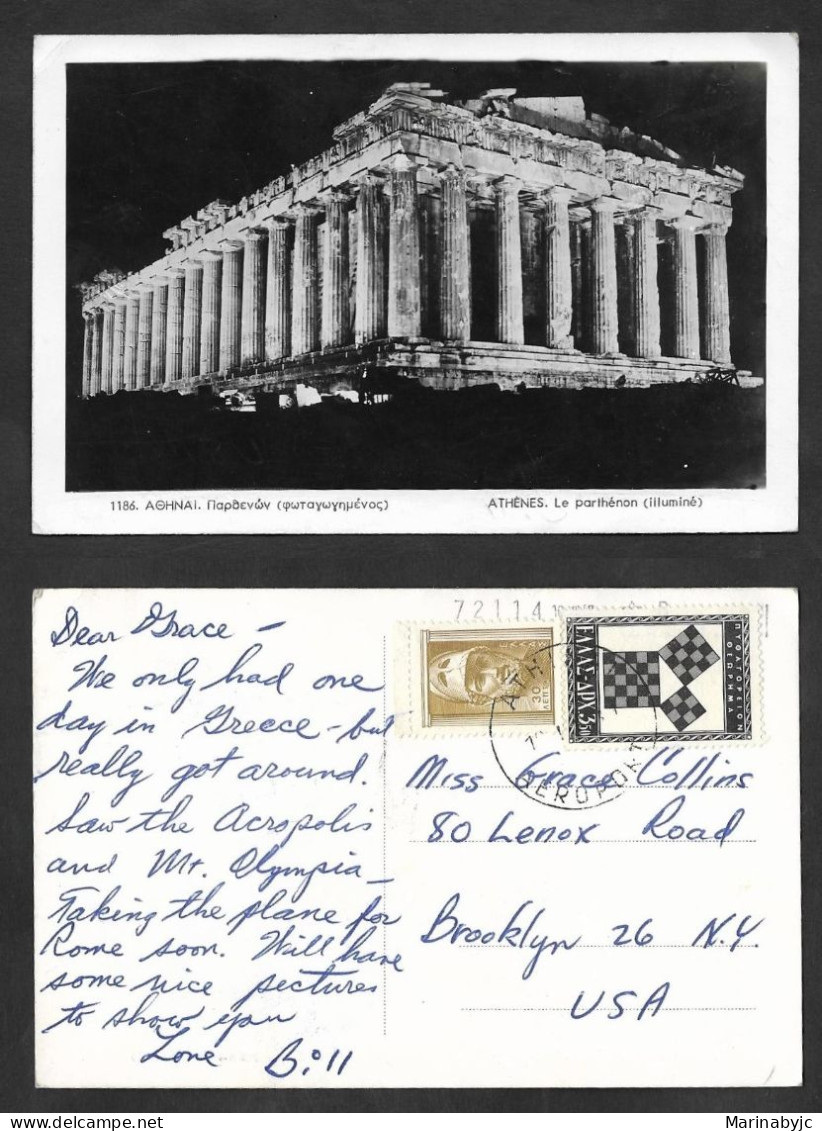 1186. ΑΘΗΝΑΙ. Παρθενών (φωταγωγημένος)
ATHÈNES. Le parthénon (illuminé)
72114
Dear Grace –
We only had one
day in Greece – but
really got around.
Saw the Acropolis
and Mt. Olympia –
Taking the plane for
Rome soon. Will have
some nice pictures
to show you
Love Bill
30
ΛΕΠΤ
ΠΥΘΑΓΟΡΕΙΟΝ
ΘΕΩΡΗΜΑ
ΕΛΛΑΣ-ΔΡΧ 3,50
AEROPORT
Miss Grace Collins
80 Lenox Road
Brooklyn 26 N.Y.
USA
Marinabyjc